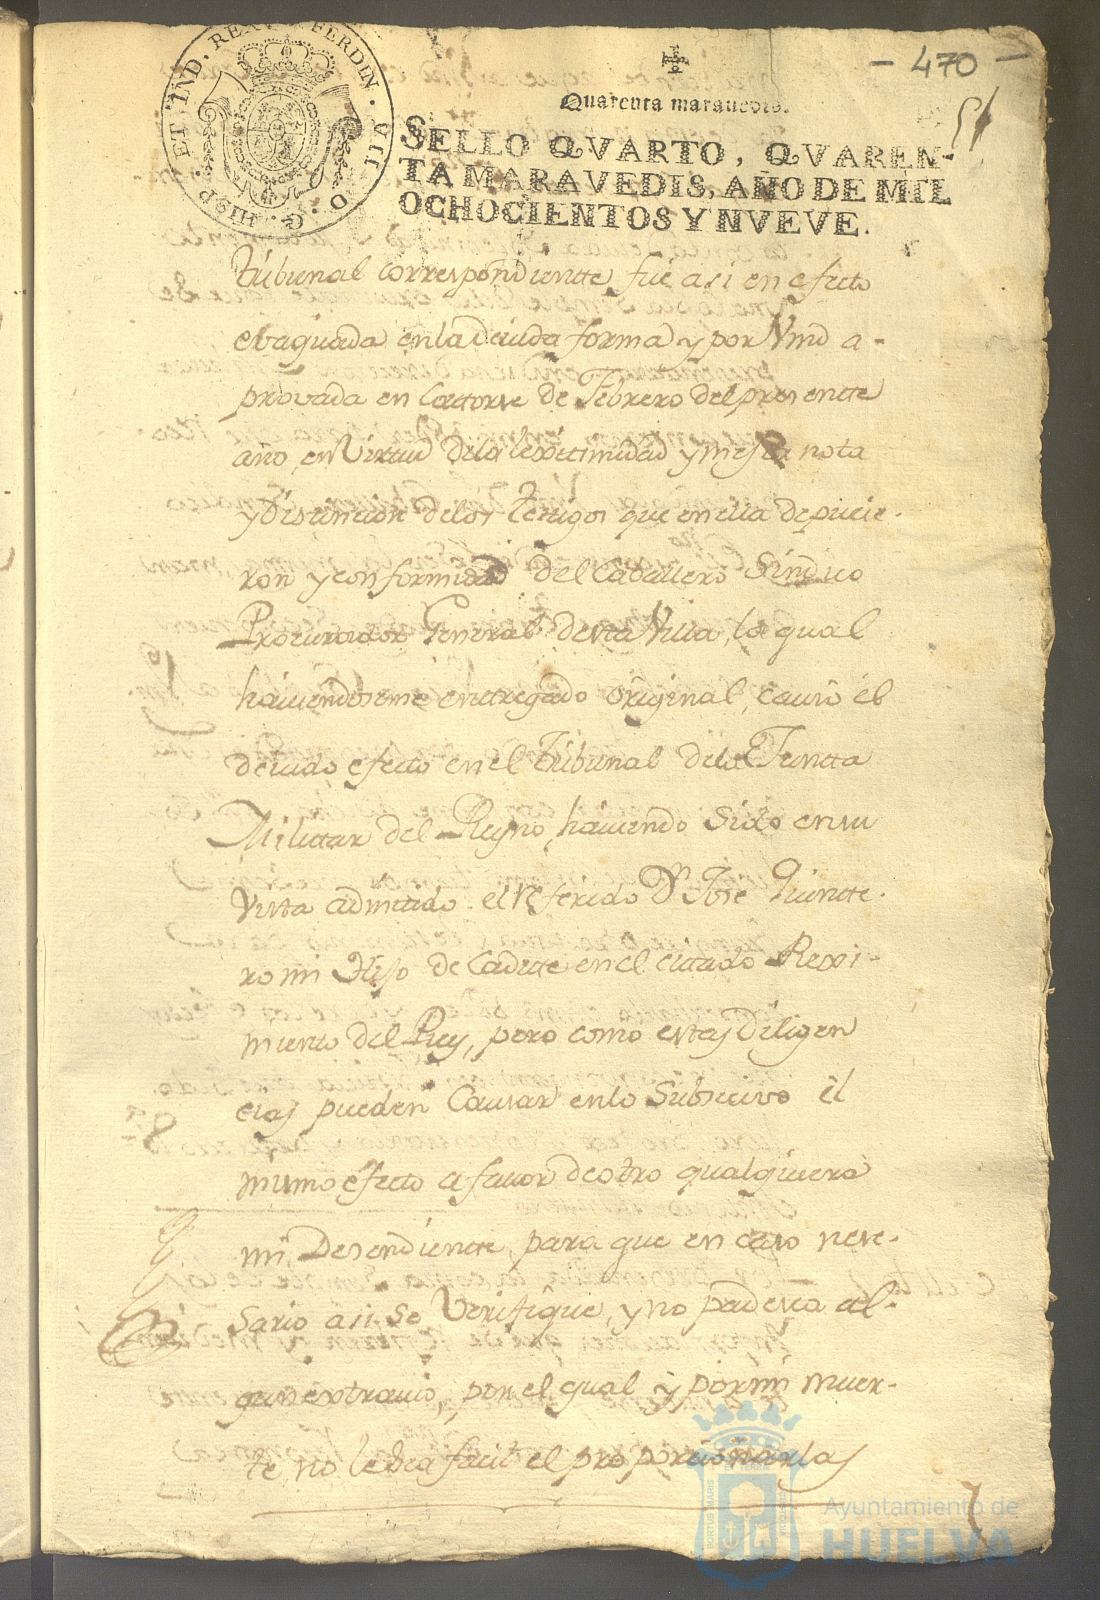 - 470 -
51
Quarenta maravedis.
SELLO QVARTO, QVAREN-
TA MARAVEDIS, AÑO DE MIL
OCHOCIENTOS Y NVEVE.
FERDIN. VII. D. G. HISP. ET IND. REX
tribunal correspondiente, fue asi en efecto
ebaquada en la devida forma y por Vmd a-
provada en Catorse de Febrero del presente
año, en Virtud de la lexitimidad y mejor nota
y Distincion de los Testigos que en ella depucie-
ron y conformidad del Caballero Sindico
Procurador General desta Villa, la qual
haviendoseme entregado original, causó el
devido efecto en el Tribunal de la Juncta
Militar del Reyno, haviendo Sido en su
Vista admitido el referido Dn José Quinte-
ro mi Hijo de Cadete en el citado Rexi-
miento del Rey, pero como estas Diligen
cias pueden Causar en lo Subsecivo el
mismo efecto a favor de otro qualquiera
mi Desendiente, para que en caso nese-
sario asi se Verifique, y no padesca al-
gun extravio, por el qual y por mi muer-
te, no le sea facil el proporcionarlas
Ayuntamiento de
HUELVA